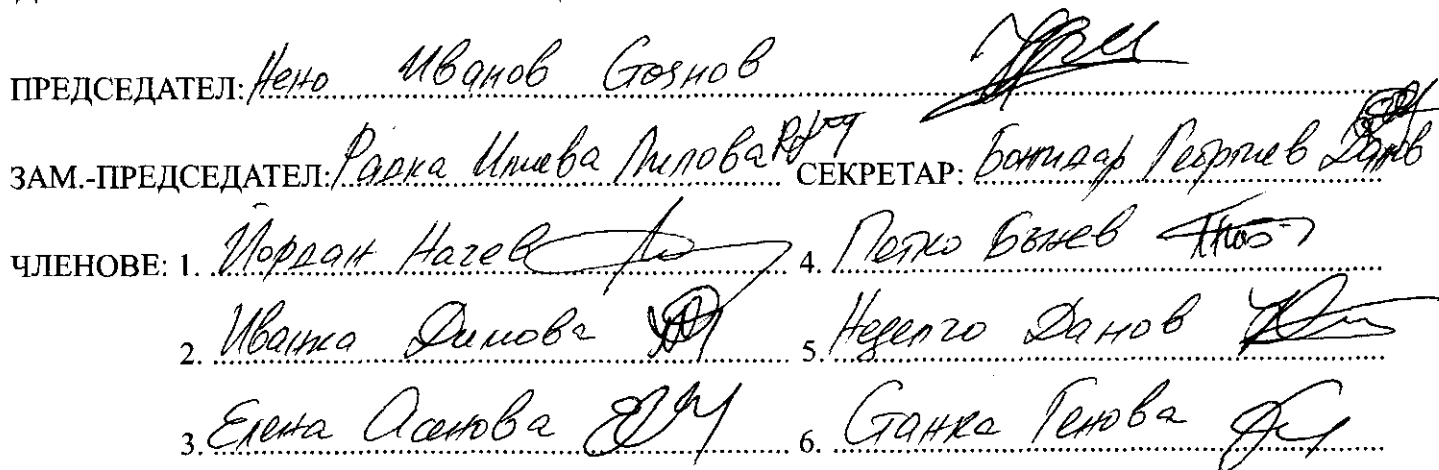 ПРЕДСЕДАТЕЛ: Нено Иванов Стоянов
ЗАМ.-ПРЕДСЕДАТЕЛ: Радка Илиева Лилова СЕКРЕТАР: Божидар Георгиев Данов
ЧЛЕНОВЕ: 1. Йордан Начев 4. Петко Бънев
2. Иванка Димова 5. Неделчо Данов
3. Елена Асенова 6. Станка Генова